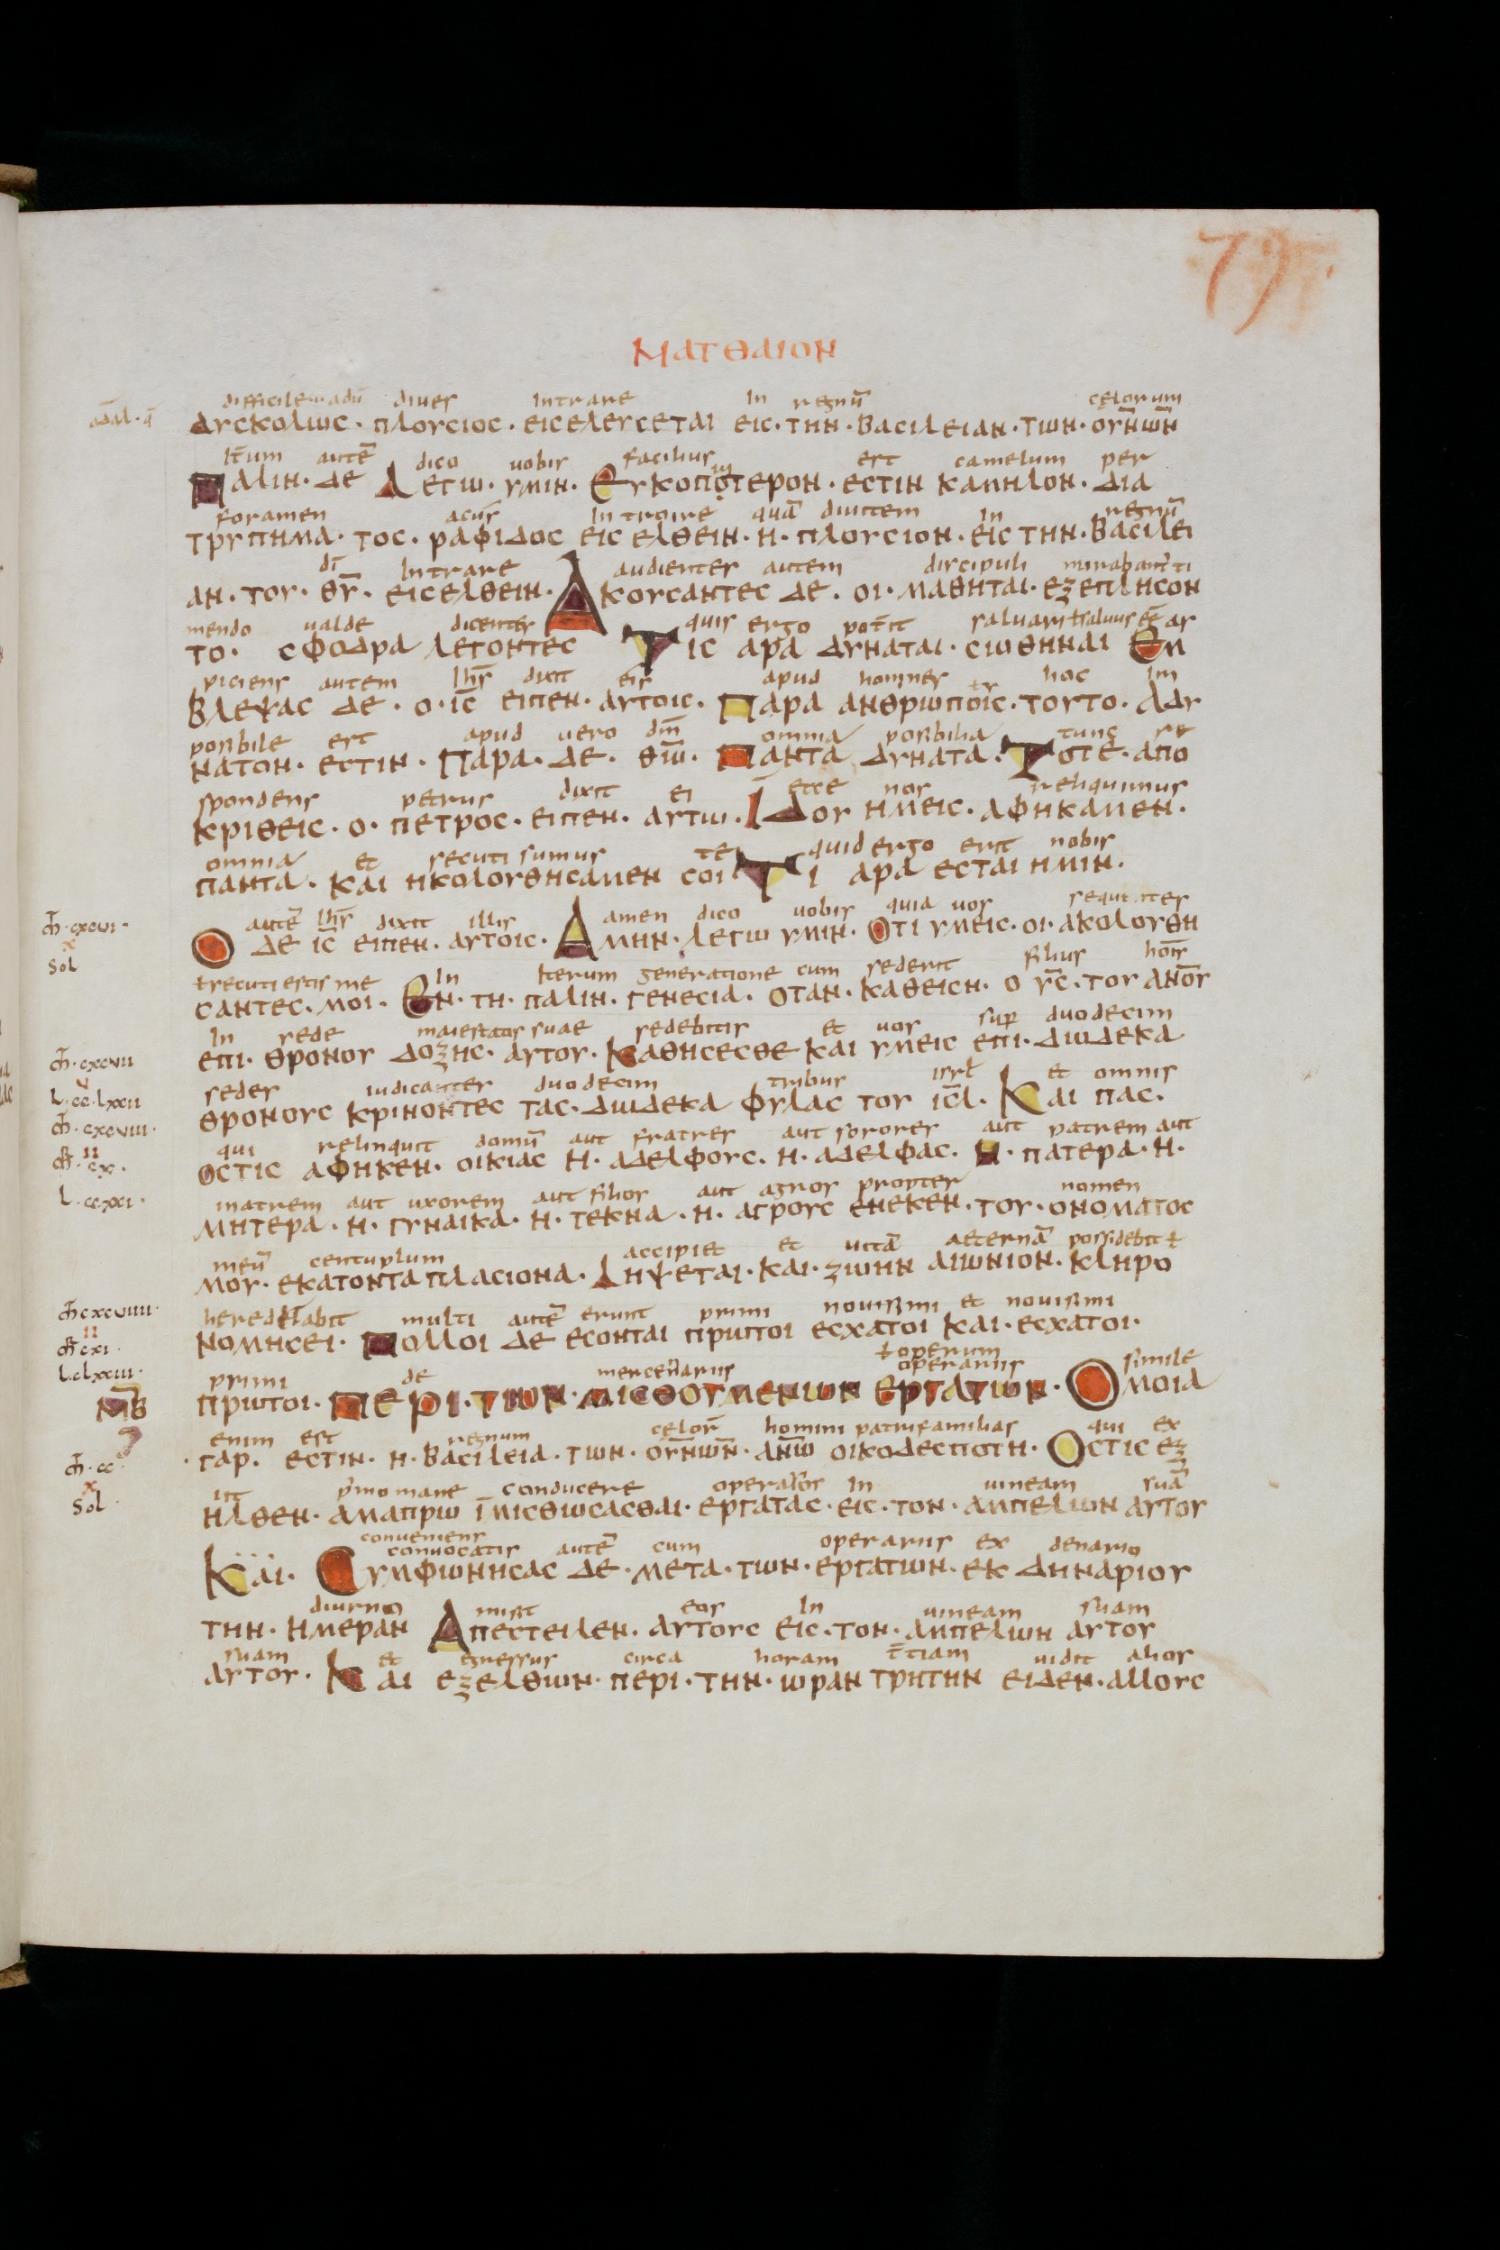 79.
ΜΑΤΘΑΙΟΝ
difficile diues Intrare In regnū cęlorum
ΔΥСΚΟΛΙѠС · ΠΛΟΥСΙΟС · ΕΙСΕΛΕΥСΕΤΑΙ ΕΙС · ΤΗΝ · ΒΑСΙΛΕΙΑΝ · ΤѠΝ · ΟΥ̅Ν̅Ѡ̅Ν̅
It̅um autē dico uobis facilius est camelum per
ΠΑΛΙΝ · ΔΕ ΛΕΓѠ · ΥΜΙΝ · ΕΥΚΟΠΟΤΕΡΟΝ · ΕСΤΙΝ ΚΑΜΗΛΟΝ · ΔΙΑ
foramen acus Introire quā diuitem In regnū
ΤΡΥΠΗΜΑ · ΤΟС · ΡΑΦΙΔΟС ΕΙС ΕΛΘΕΙΝ · Η · ΠΛΟΥСΙΟΝ · ΕΙС ΤΗΝ · ΒΑСΙΛΕΙ
di̅ Intrare audientes autem discipuli
ΑΝ · ΤΟΥ · Θ̅Υ̅ · ΕΙСΕΛΘΕΙΝ · ΑΚΟΥСΑΝΤΕС ΔΕ · ΟΙ · ΜΑΘΗΤΑΙ · ΕΞΕΠΛΗСΟΝ
mendo ualde dicentes quis ergo pot̅it saluari ł saluus e̅e̅ as
ΤΟ · СΦΟΔΡΑ ΛΕΓΟΝΤΕС ΤΙС ΑΡΑ ΔΥΝΑΤΑΙ · СΙѠΘΗΝΑΙ ΕΜ
piciens autem Ih̅s dixit eis apud homines hoc Im
ΒΛΕΨΑС ΔΕ · Ο · Ι̅С̅ ΕΙΠΕΝ · ΑΥΤΟΙС · ΠΑΡΑ ΑΝΘΡѠΠΟΙС · ΤΟΥΤΟ · ΑΔΥ
possibile est apud uero dm̅ omnia possibilia tunc re
ΝΑΤΟΝ · ΕСΤΙΝ · ΠΑΡΑ · ΔΕ · Θ̅Ѡ̅ · ΠΑΝΤΑ ΔΥΝΑΤΑ · ΤΟΤΕ · ΑΠΟ
spondens petrus dixit ei ecce nos reliquimus
ΚΡΙΘΕΙС · Ο · ΠΕΤΡΟС · ΕΙΠΕΝ · ΑΥΤѠ · ΙΔΟΥ ΗΜΕΙС · ΑΦΗΚΑΜΕΝ ·
omnia et secuti sumus te quid ergo erit nobis
ΠΑΝΤΑ · ΚΑΙ ΗΚΟΛΟΥΘΗСΑΜΕΝ СΟΙ ΤΙ ΑΡΑ ΕСΤΑΙ ΗΜΙΝ ·
autē Ih̅s dixit illis amen dico uobis quia uos
Ο ΔΕ Ι̅С̅ ΕΙΠΕΝ · ΑΥΤΟΙС · ΑΜΗΝ · ΛΕΓѠ ΥΜΙΝ · ΟΤΙ ΥΜΕΙС · ΟΙ · ΑΚΟΛΟΥΘΗ
ł secuti estis me In Iterum generatione cum sederit filius ho̅is
СΑΝΤΕС · ΜΟΙ · ΕΝ · ΤΗ · ΠΑΛΙΝ · ΓΕΝΕСΙΑ · ΟΤΑΝ · ΚΑΘΕΙСΗ · Ο Υ̅С̅ · ΤΟΥ ΑΝ̅Ο̅Υ
In sede maiestatis suae sedebitis et uos sup̅ duodecim
ΕΠΙ · ΘΡΟΝΟΥ ΔΟΞΗС · ΑΥΤΟΥ · ΚΑΘΗСΕСΘΕ ΚΑΙ ΥΜΕΙС ΕΠΙ · ΔΙѠΔΕΚΑ
sedes iudicantes duodecim tribus isrl̅ et omnis
ΘΡΟΝΟΥС ΚΡΙΝΟΝΤΕС ΤΑС · ΔΙѠΔΕΚΑ ΦΥΛΑС ΤΟΥ Ι̅С̅Λ · ΚΑΙ ΠΑС ·
qui relinquit domū aut fratres aut sorores aut patrem aut
ΟСΤΙС ΑΦΗΚΕΝ · ΟΙΚΙΑС Η · ΑΔΕΛΦΟΥС · Η · ΑΔΕΛΦΑС · Η · ΠΑΤΕΡΑ · Η ·
matrem aut uxorem aut filios aut agros propter nomen
ΜΗΤΕΡΑ · Η · ΓΥΝΑΙΚΑ · Η · ΤΕΚΝΑ · Η · ΑΓΡΟΥС ΕΝΕΚΕΝ · ΤΟΥ · ΟΝΟΜΑΤΟС
meū centuplum accipiet et uitā aeternā possidebit ł
ΜΟΥ · ΕΚΑΤΟΝΤΑΠΛΑСΙΟΝΑ · ΛΗΨΕΤΑΙ · ΚΑΙ · ΖΙѠΗΝ ΑΙѠΝΙΟΝ · ΚΛΗΡΟ
hereditabit multi autē erunt primi nouissimi et nouissimi
ΝΟΜΗСΕΙ · ΠΟΛΛΟΙ ΔΕ ΕСΟΝΤΑΙ ΠΡѠΤΟΙ ΕСΧΑΤΟΙ ΚΑΙ · ΕСΧΑΤΟΙ ·
ł operum
primi de mercenariis operariis simile
ΠΡѠΤΟΙ · ΠΕΡΙ · ΤѠΝ · ΜΙСΘΟΥΜΕΝΙѠΝ ΕΡΓΑΤΙѠΝ · ΟΜΟΙΑ
enim est regnum cęlor̅ homini patrifamilias qui ex
ΓΑΡ · ΕСΤΙΝ · Η · ΒΑСΙΛΕΙΑ · ΤѠΝ · ΟΥ̅Ν̅Ѡ̅Ν̅ · ΑΝ̅Ѡ̅ ΟΙΚΟΔΕСΠΟΤΗ · ΟСΤΙС ΕΞ
iit p̅mo mane conducere operarios In uineam suā
ΗΛΘΕΝ · ΑΜΑΠΡѠ ΙΜΙСΘѠСΑСΘΑΙ · ΕΡΓΑΤΑС · ΕΙС · ΤΟΝ · ΑΜΠΕΛΙѠΝ ΑΥΤΟΥ
conueniens
conuocatis autē cum operariis ex denario
ΚΑΙ · СΥΜΦѠΝΗСΑС ΔΕ · ΜΕΤΑ · ΤѠΝ · ΕΡΓΑΤѠΝ · ΕΚ ΔΗΝΑΡΙΟΥ
diurno misit eos In uineam suam
ΤΗΝ · ΗΜΕΡΑΝ ΑΠΕСΤΕΙΛΕΝ · ΑΥΤΟΥС ΕΙС · ΤΟΝ · ΑΜΠΕΛΙѠΝ ΑΥΤΟΥ
suam et egressus circa horam t̅tiam uidit alios
ΑΥΤΟΥ · ΚΑΙ ΕΞΕΛΘѠΝ · ΠΕΡΙ · ΤΗΝ · ѠΡΑΝ ΤΡΗΤΗΝ ΕΙΔΕΝ · ΑΛΛΟΥС
cxcvi ·
x
Sol
cxcvii
v
L · cc · lxxii
cxcviii ·
ii
cx ·
L · ccxxi ·
cxcviiii ·
ii
cxi ·
L · clxxiii ·
cc
x
Sol ·